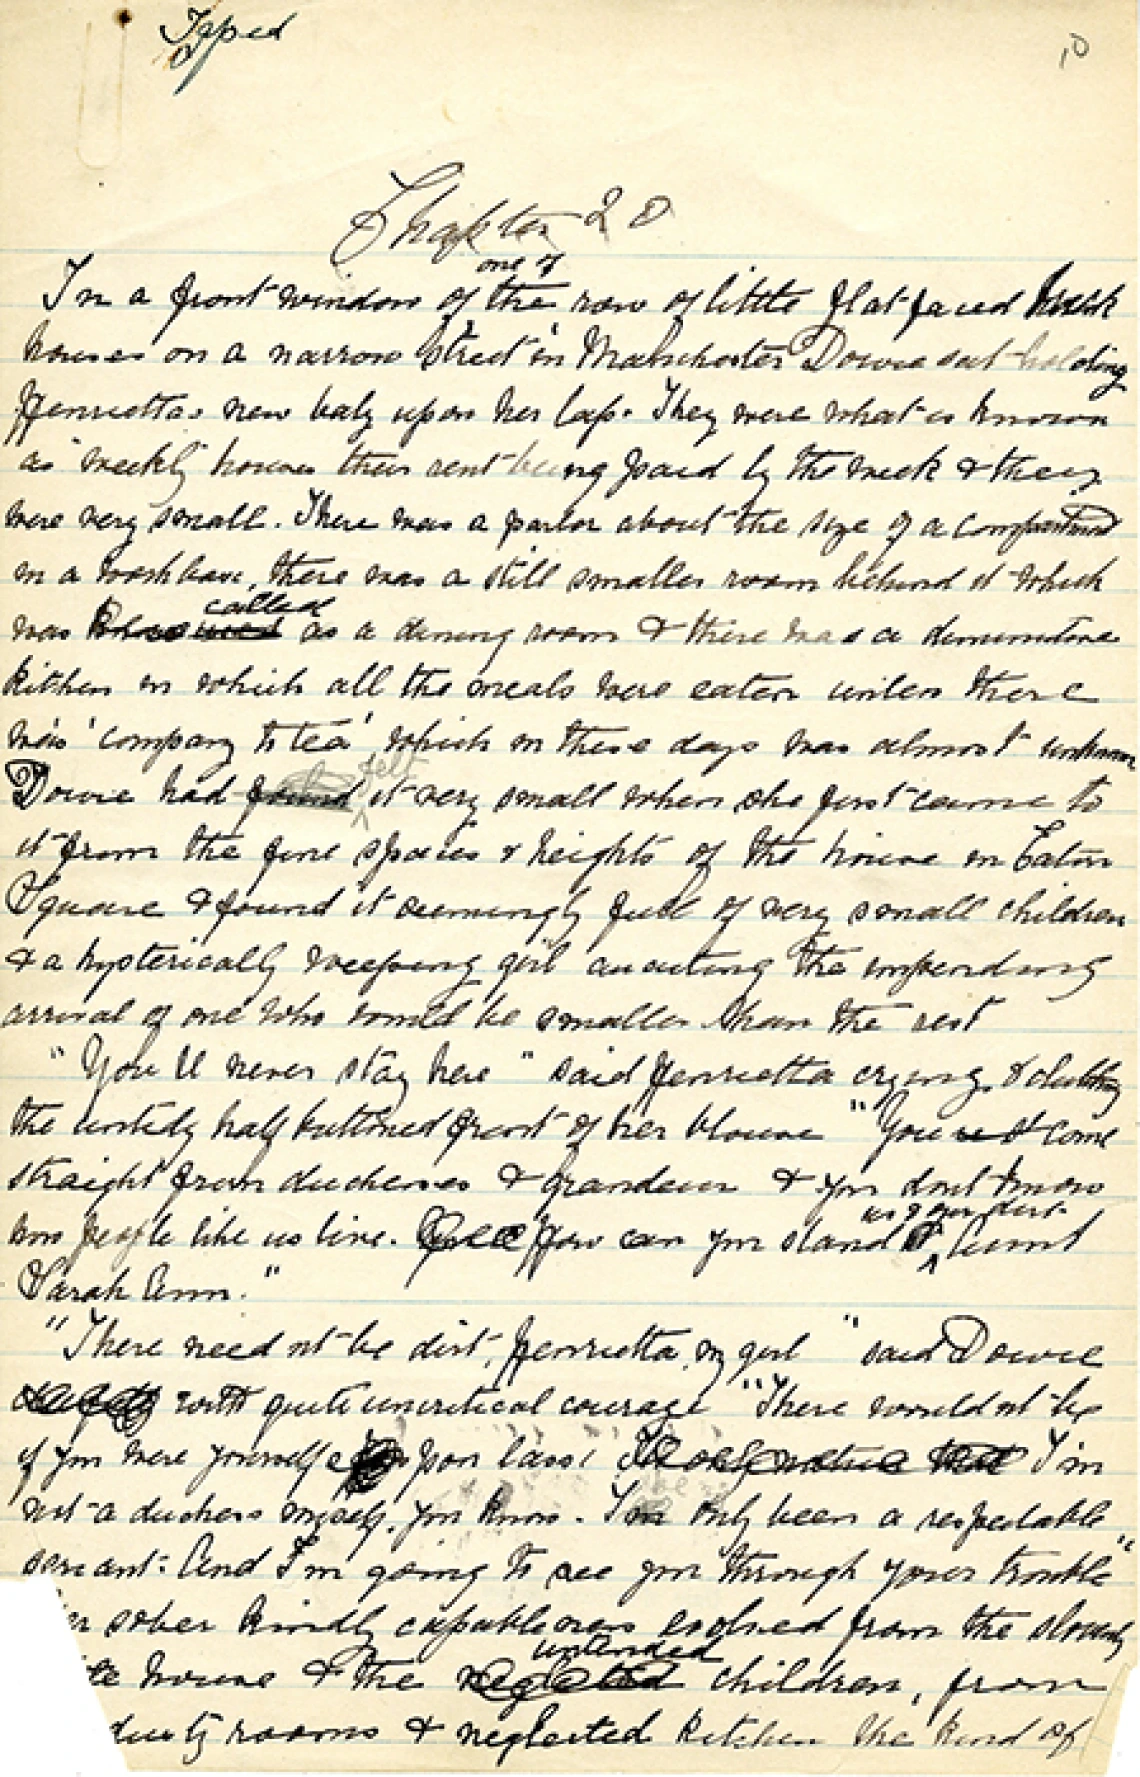 Typed
10
Chapter 20
one of
In a front window of the row of little flat faced brick
houses on a narrow street in Manchester Dowie sat holding
Henrietta's new baby upon her lap. They were what is known
as "weekly" houses their rent being paid by the week & they
were very small. There was a parlor about the size of a compartment
in a workbox, there was a still smaller room behind it which
called
was as a dining room & there was a diminutive
kitchen in which all the meals were eaten unless there
was 'company to tea' which in these days was almost unknown
felt
Dowie had found it very small when she first came to
it from the fine spaces & heights of the house in Eaton
Square & found it seemingly full of very small children
& a hysterically weeping girl awaiting the impending
arrival of one who would be smaller than the rest
"You'll never stay here" said Henrietta crying & clutching
the untidy half buttoned front of her blouse "You come
straight from duchesses & grandeur & you don't know
as & our dirt
how people like us live. How can you stand Aunt
Sarah Ann."
"There need n't be dirt, Henrietta, my girl" said Dowie
with quite uncritical courage "There would n't be
if you were yourself poor lass I'm
not a duchess myself, you know. I've only been a respectable
servant. And I'm going to see you through your trouble"
sober kindly capableness evolved from the slovenly
untended
house & the neglected children, from
dusty rooms & neglected kitchen the kind of